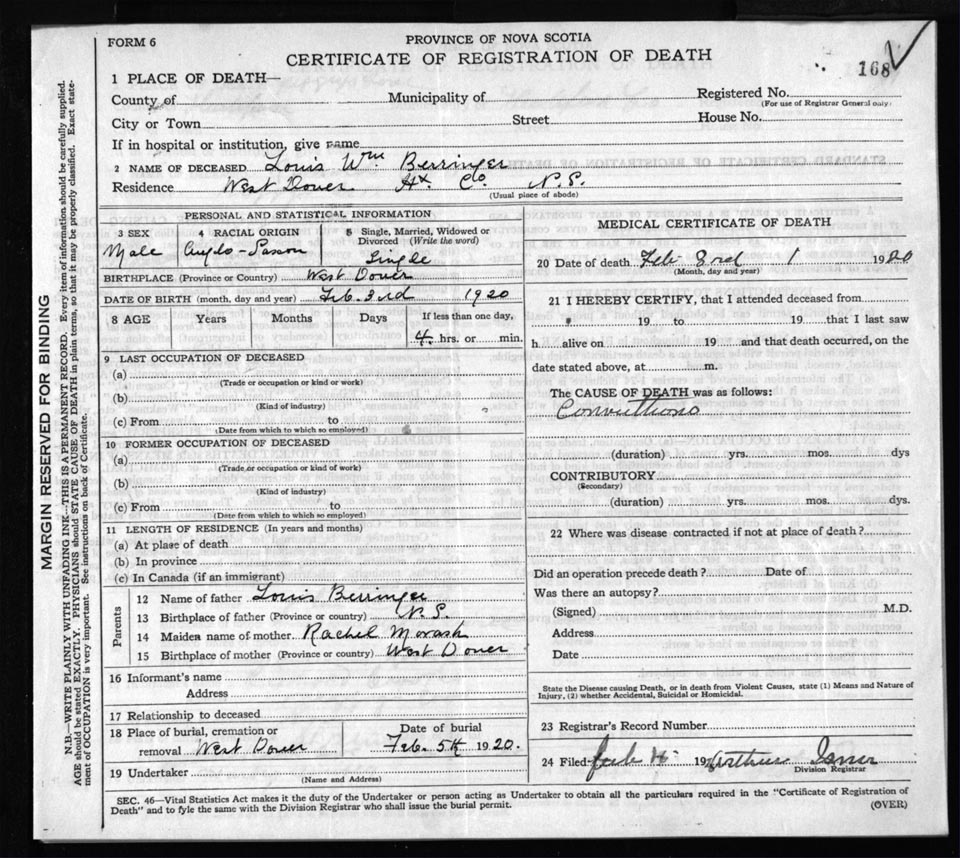 FORM 6
PROVINCE OF NOVA SCOTIA
CERTIFICATE OF REGISTRATION OF DEATH
168
1 PLACE OF DEATH—
County of
Municipality of
Registered No.
(For use of Registrar General only)
City or Town
Street
House No.
If in hospital or institution, give name
2 NAME OF DECEASED Louis Wm Berringer
Residence West Dover Hx. Co. N.S.
(Usual place of abode)
PERSONAL AND STATISTICAL INFORMATION
3 SEX
Male
4 RACIAL ORIGIN
Anglo-Saxon
5 Single, Married, Widowed or Divorced (Write the word)
Single
BIRTHPLACE (Province or Country) West Dover
DATE OF BIRTH (month, day and year) Feb. 3rd 1920
8 AGE Years Months Days If less than one day,
4 hrs. or min.
9 LAST OCCUPATION OF DECEASED
(a)
(Trade or occupation or kind or work)
(b)
(Kind of industry)
(c) From to
(Date from which to which so employed)
10 FORMER OCCUPATION OF DECEASED
(a)
(Trade or occupation or kind of work)
(b)
(Kind of industry)
(c) From to
(Date from which to which so employed)
11 LENGTH OF RESIDENCE (In years and months)
(a) At place of death
(b) In province
(c) In Canada (if an immigrant)
Parents
12 Name of father Louis Berringer
13 Birthplace of father (Province or country) N.S.
14 Maiden name of mother Rachel Morash
15 Birthplace of mother (Province or country) West Dover
16 Informant's name
Address
17 Relationship to deceased
18 Place of burial, cremation or removal West Dover
Date of burial
Feb. 5th 1920.
19 Undertaker
(Name and Address)
MEDICAL CERTIFICATE OF DEATH
20 Date of death Feb 3rd 1920
(Month, day and year)
21 I HEREBY CERTIFY, that I attended deceased from
19 to 19 that I last saw
h alive on 19 and that death occurred, on the
date stated above, at m.
The CAUSE OF DEATH was as follows:
Convultions
(duration) yrs. mos. dys
CONTRIBUTORY
(Secondary)
(duration) yrs. mos. dys.
22 Where was disease contracted if not at place of death?
Did an operation precede death? Date of
Was there an autopsy?
(Signed) M.D.
Address
Date
State the Disease causing Death, or in death from Violent Causes, state (1) Means and Nature of
Injury, (2) whether Accidental, Suicidal or Homicidal.
23 Registrar's Record Number
24 Filed 19 Arthur
Division Registrar
SEC. 46—Vital Statistics Act makes it the duty of the Undertaker or person acting as Undertaker to obtain all the particulars required in the "Certificate of Registration of
Death" and to fyle the same with the Division Registrar who shall issue the burial permit.
(OVER)
MARGIN RESERVED FOR BINDING
N.B.—WRITE PLAINLY WITH UNFADING INK—THIS IS A PERMANENT RECORD. Every item of information should be carefully supplied.
AGE should be stated EXACTLY. PHYSICIANS should STATE CAUSE OF DEATH in plain terms, so that it may be properly classified. Exact statement
of OCCUPATION is very important. See instructions on back of Certificate.